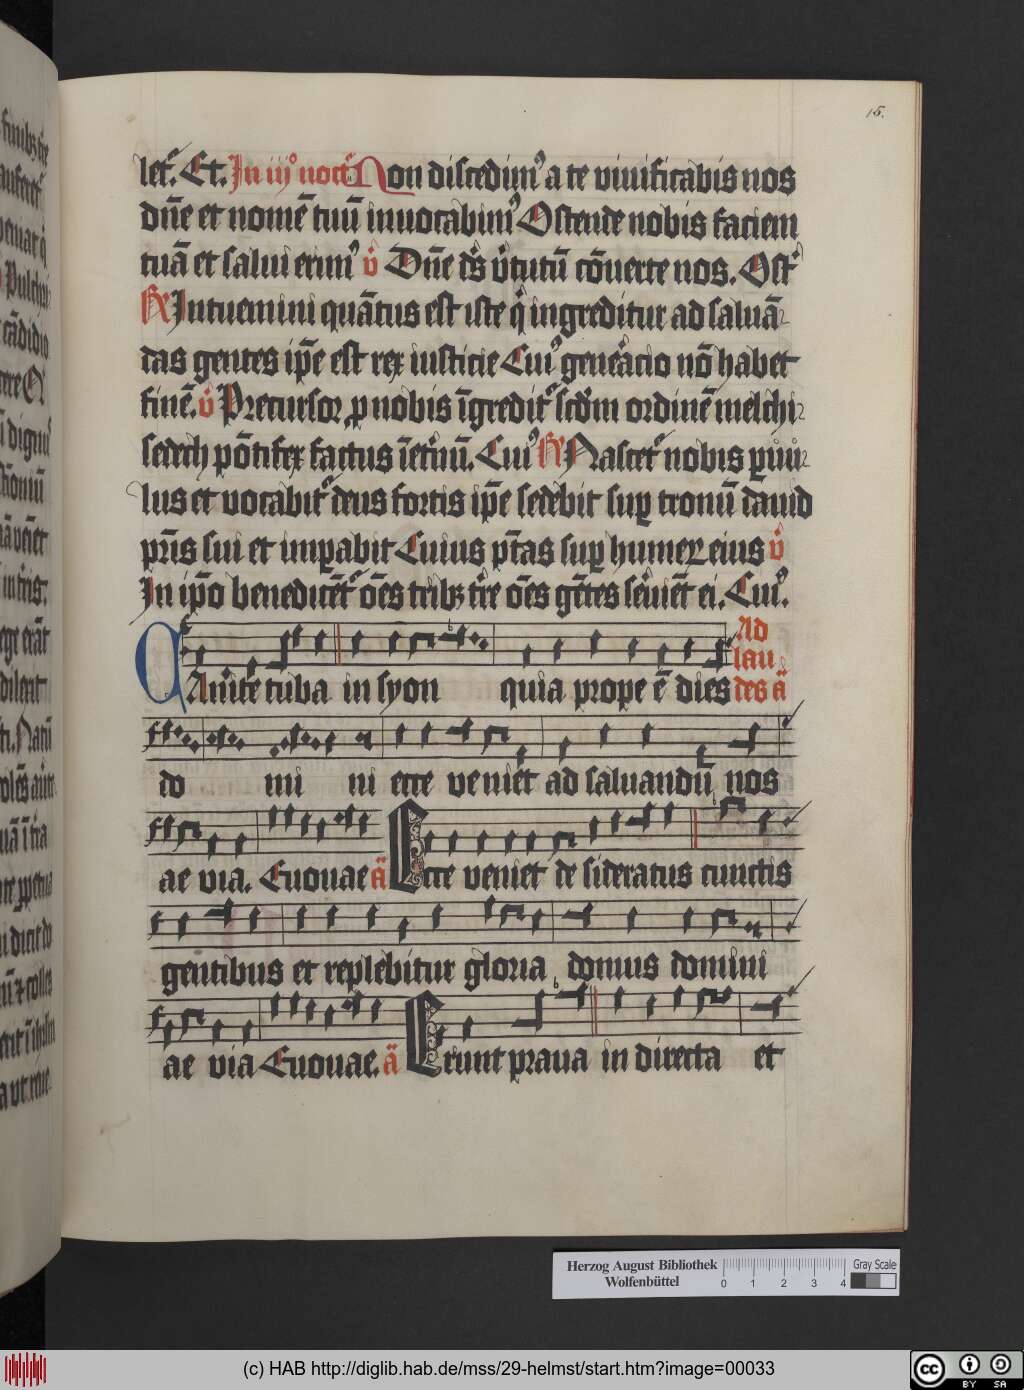 15.
let᷑. Et. In iijͦ noct᷑ Non discedimꝰ a te viuificabis nos
dn̄e et nomē tuū inuocabimꝰ Ostende nobis faciem
tuā et salui erimꝰ v̊ Dn̄e ds̄ v̓tutū cōuerte nos. Ost᷑
R̷ Intuemini quātus est iste qͥ ingreditur ad saluā-
das gentes ip̄e est rex iusticie Cuiꝰ gen̓acio nō habet
finē. v̊ Precursor ꝓ nobis īgredit᷑ scd̓m ordinē melchi-
sedech pōtifex factus ī et̓nū. Cuiꝰ R̷ Nascet᷑ nobis ꝑuu-
lus et vocabit᷑ deus fortis ip̄e sedebit suꝑ tronū dauid
pr̄is sui et imꝑabit Cuius pt̄as suꝑ humeꝝ eius v̊
In ip̄o benedicēt᷑ oēs tribꝫ t̓re oēs gētes s̓uiēt ei. Cuiꝰ.
Ad
lau
CAnite tuba in syon quia prope ē dies des ā
do mi ni ecce veniet ad saluandū nos
ae via. Euouae ā Ecce veniet desideratus cunctis
gentibus et replebitur gloria domus domini
ae via Euouae. ā Erunt praua in directa et
Herzog August Bibliothek
Wolfenbüttel
0 1 2 3 4
Gray Scale
(c) HAB http://diglib.hab.de/mss/29-helmst/start.htm?image=00033
cc BY SA